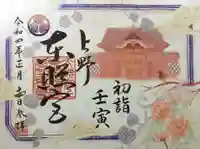 上野
東照宮
初詣
壬寅
令和四年正月